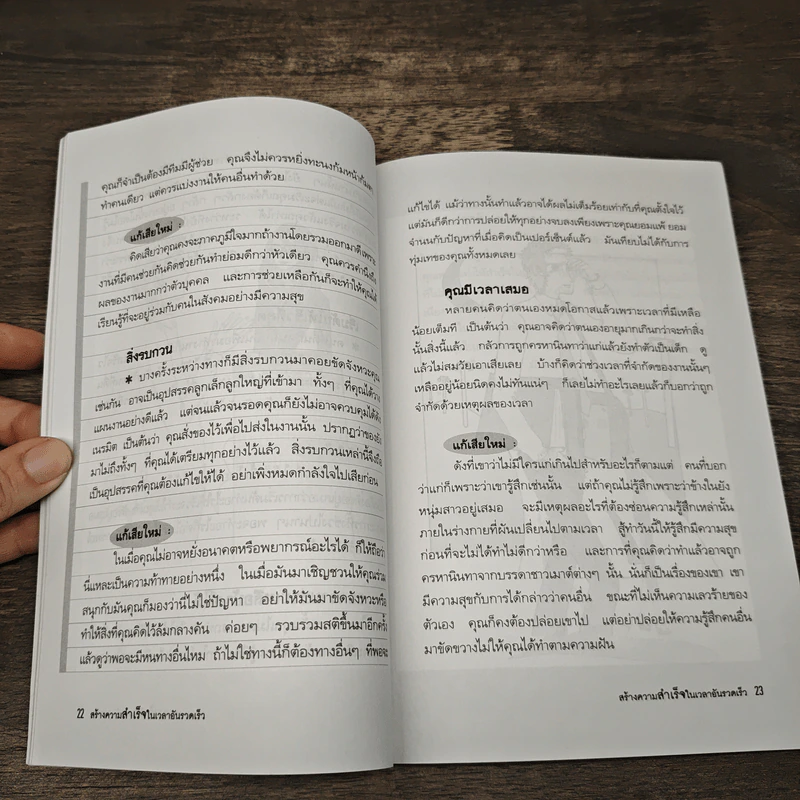 คุณก็จำเป็นต้องมีทีมมีผู้ช่วย คุณจึงไม่ควรหยิ่งทะนงก้มหน้าก้มตา
ทำคนเดียว แต่ควรแบ่งงานให้คนอื่นทำด้วย
แก้เสียใหม่ :
คิดเสียว่าคุณคงจะภาคภูมิใจมากถ้างานโดยรวมออกมาดี เพราะ
งานที่มีคนช่วยกันคิดช่วยกันทำย่อมดีกว่าหัวเดียว คุณควรคำนึงถึง
ผลของงานมากกว่าตัวบุคคล และการช่วยเหลือกันก็จะทำให้คุณได้
เรียนรู้ที่จะอยู่ร่วมกับคนในสังคมอย่างมีความสุข
สิ่งรบกวน
* บางครั้งระหว่างทางก็มีสิ่งรบกวนมาคอยขัดจังหวะคุณ
เช่นกัน อาจเป็นอุปสรรคลูกเล็กลูกใหญ่ที่เข้ามา ทั้งๆ ที่คุณได้วาง
แผนงานอย่างดีแล้ว แต่จนแล้วจนรอดคุณก็ยังไม่อาจควบคุมได้ดัง
เนรมิต เป็นต้นว่า คุณสั่งของไว้เพื่อไปส่งในงานนั้น ปรากฏว่าของยัง
มาไม่ถึงทั้งๆ ที่คุณได้เตรียมทุกอย่างไว้แล้ว สิ่งรบกวนเหล่านี้จึงถือ
เป็นอุปสรรคที่คุณต้องแก้ไขให้ได้ อย่าเพิ่งหมดกำลังใจไปเสียก่อน
แก้เสียใหม่ :
ในเมื่อคุณไม่อาจหยั่งอนาคตหรือพยากรณ์อะไรได้ ก็ให้ถือว่า
นี่แหละเป็นความท้าทายอย่างหนึ่ง ในเมื่อมันมาเชิญชวนให้คุณร่วม
สนุกกับมันคุณก็มองว่านี่ไม่ใช่ปัญหา อย่าให้มันมาขัดจังหวะหรือ
ทำให้สิ่งที่คุณคิดไว้ล้มกลางคัน ค่อยๆ รวบรวมสติขึ้นมาอีกครั้ง
แล้วดูว่าพอจะมีหนทางอื่นไหม ถ้าไม่ใช่ทางนี้ก็ต้องทางอื่นๆ ที่พอจะ
22 สร้างความสำเร็จในเวลาอันรวดเร็ว
แก้ไขได้ แม้ว่าทางนั้นทำแล้วอาจได้ผลไม่เต็มร้อยเท่ากับที่คุณตั้งใจไว้
แต่มันก็ดีกว่าการปล่อยให้ทุกอย่างจบลงเพียงเพราะคุณยอมแพ้ ยอม
จำนนกับปัญหาที่เมื่อคิดเป็นเปอร์เซ็นต์แล้ว มันเทียบไม่ได้กับการ
ทุ่มเทของคุณทั้งหมดเลย
คุณมีเวลาเสมอ
หลายคนคิดว่าตนเองหมดโอกาสแล้วเพราะเวลาที่มีเหลือ
น้อยเต็มที เป็นต้นว่า คุณอาจคิดว่าตนเองอายุมากเกินกว่าจะทำสิ่ง
นั้นสิ่งนี้แล้ว กลัวการถูกครหานินทาว่าแก่แล้วยังทำตัวเป็นเด็ก ดู
แล้วไม่สมวัยเอาเสียเลย บ้างก็คิดว่าช่วงเวลาที่จำกัดของงานนั้นๆ
เหลืออยู่น้อยนิดคงไม่ทันแน่ๆ ก็เลยไม่ทำอะไรเลยแล้วก็บอกว่าถูก
จำกัดด้วยเหตุผลของเวลา
แก้เสียใหม่ :
ดังที่เขาว่าไม่มีใครแก่เกินไปสำหรับอะไรก็ตามแต่ คนที่บอก
ว่าแก่ก็เพราะว่าเขารู้สึกเช่นนั้น แต่ถ้าคุณไม่รู้สึกเพราะว่าข้างในยัง
หนุ่มสาวอยู่เสมอ จะมีเหตุผลอะไรที่ต้องซ่อนความรู้สึกเหล่านั้น
ภายในร่างกายที่ผันเปลี่ยนไปตามเวลา สู้ทำวันนี้ให้รู้สึกมีความสุข
ก่อนที่จะไม่ได้ทำไม่ดีกว่าหรือ และการที่คุณคิดว่าทำแล้วอาจถูก
ครหานินทาจากบรรดาชาวเมาต์ต่างๆ นั้น นั่นก็เป็นเรื่องของเขา เขา
มีความสุขกับการได้กล่าวว่าคนอื่น ขณะที่ไม่เห็นความเลวร้ายของ
ตัวเอง คุณก็คงต้องปล่อยเขาไป แต่อย่าปล่อยให้ความรู้สึกคนอื่น
มาขัดขวางไม่ให้คุณได้ทำตามความฝัน
สร้างความสำเร็จในเวลาอันรวดเร็ว 23